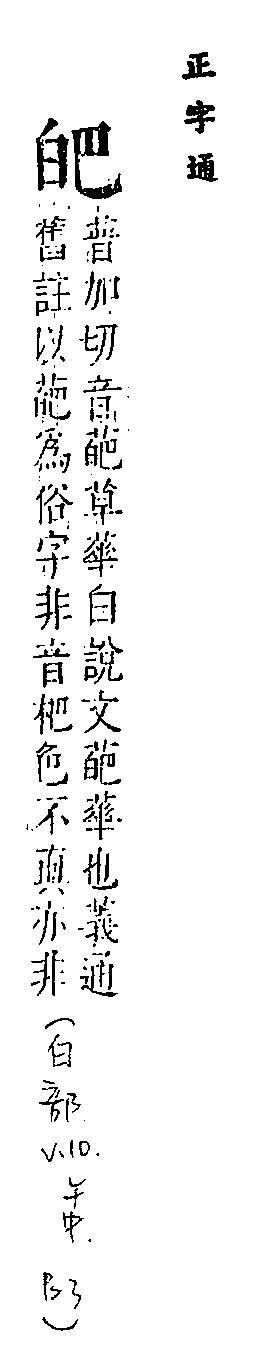 正字通
皅
普加切音葩草華白說文葩華也義通
舊註以葩為俗字非音杷色不真亦非
(白部
V.10.
午集中.
B3)